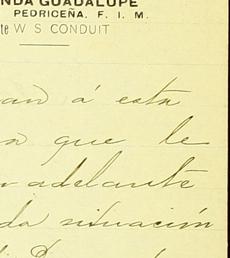 NDA GUADALUPE
PEDRICEÑA, F. I. M.
te W S CONDUIT
an á esta
que le
adelante
da situación